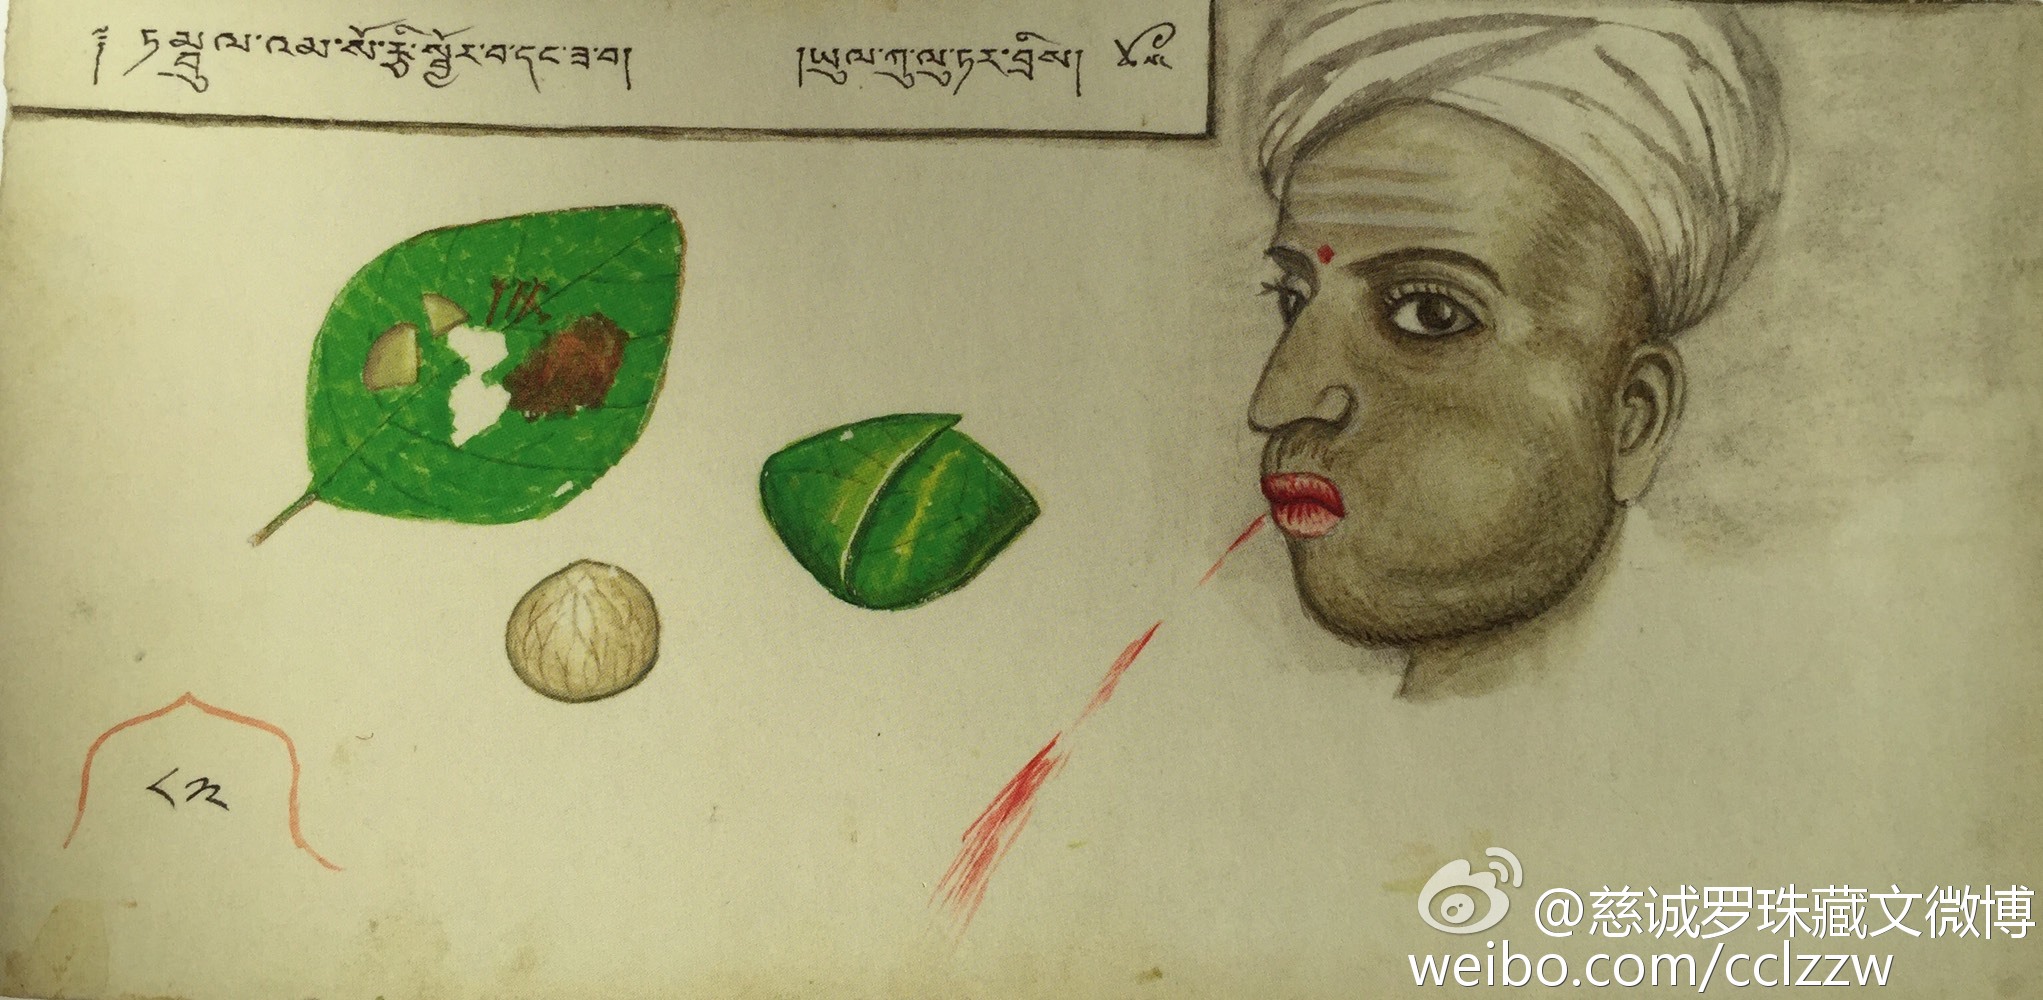 ༈ ཏམྦུལ་འམ་སོ་རྩི་སྦྱོར་བ་དང་ཟ་བ། །ཡུལ་ཀུ་ལུ་ཏར་བྲིས།
@慈诚罗珠藏文微博
weibo.com/cclzzw